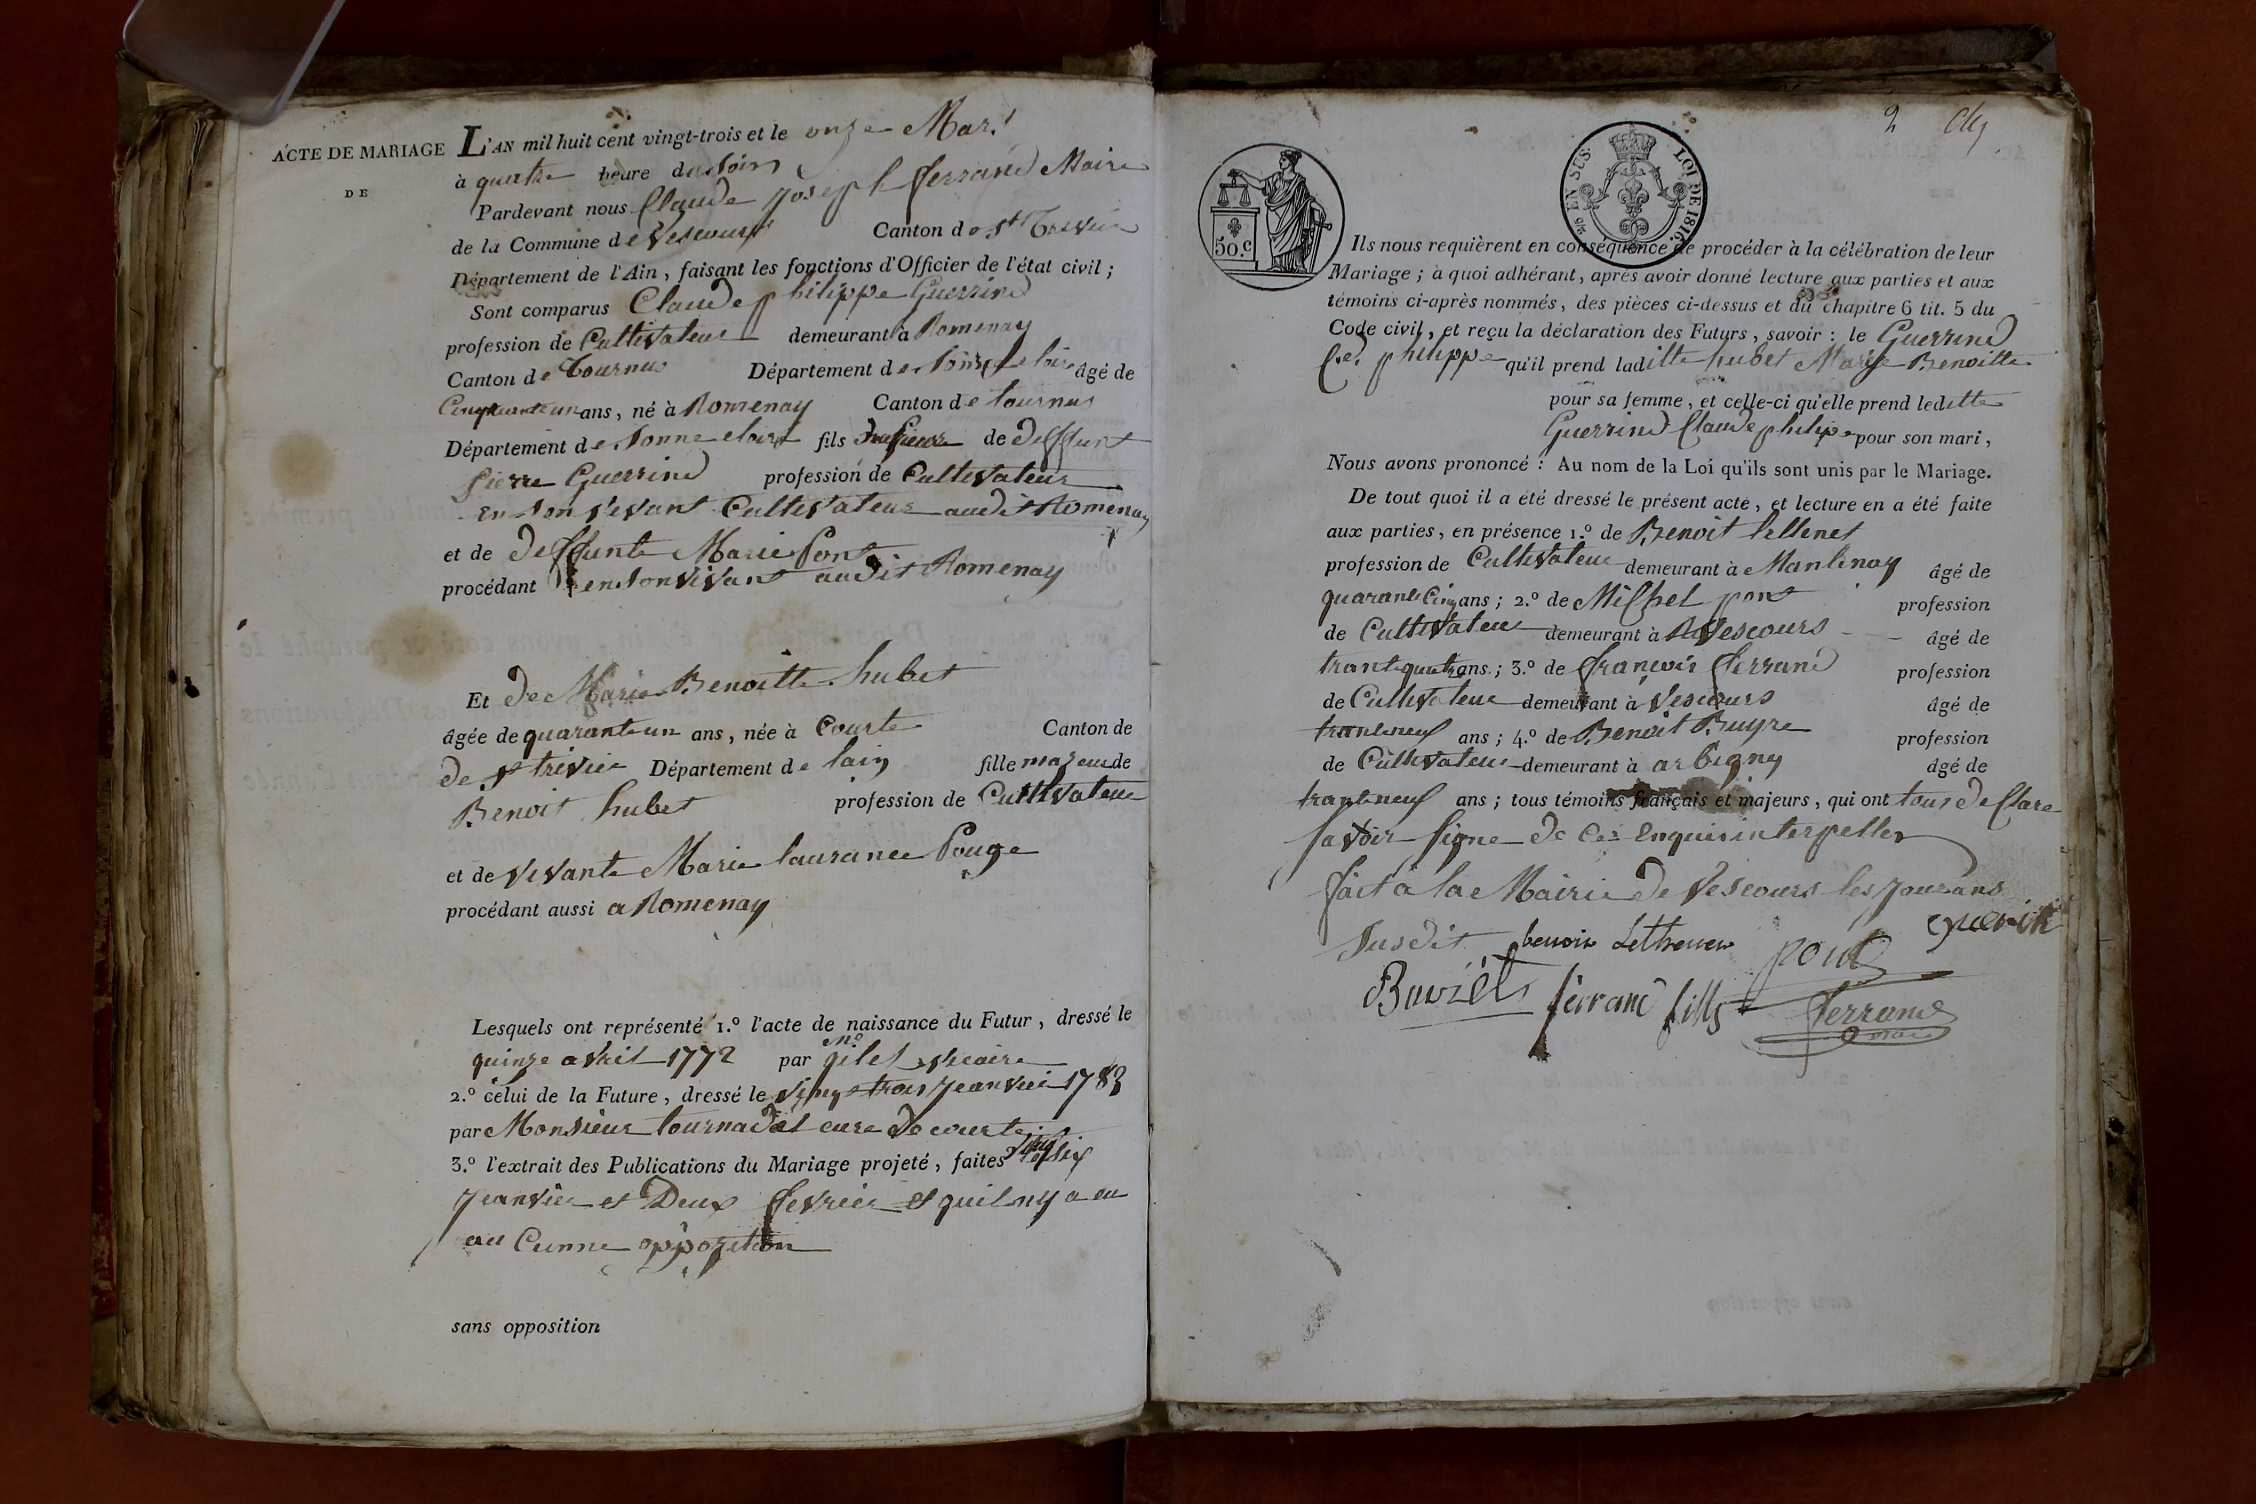 ACTE DE MARIAGE
DE
L'AN mil huit cent vingt-trois et le onze Mars
à quatre heure du soir
Pardevant nous Claude joseph ferrand Maire
de la Commune de Vescours Canton de St Trivier
Département de l'Ain, faisant les fonctions d'Officier de l'état civil;
Sont comparus Claude philippe Guerrind
profession de Cultivateur demeurant à Romenay
Canton de Tournus Département de Sonne et loire âgé de
Cinquante un ans, né à Romenay Canton de tournus
Département de Sonne e loire fils de deffunt
pierre Guerrind profession de Cultivateur
en son vivant Cultivateur audit Romenay
et de deffunte Marie pont
procédant en son vivant audit Romenay
Et de Marie Benoitte hubet
âgée de quarante un ans, née à Courte Canton de
de st trivier Département de lain fille majeur de
Benoit hubet profession de Cultivateur
et de vivante Marie laurance Pouge
procédant aussi a Romenay
Lesquels ont représenté 1.º l'acte de naissance du Futur, dressé le
quinze avril 1772 par mr gilet vicaire
2.º celui de la Future, dressé le vingt trois jeanvier 1783
par Monsieur tournadet cure de courte
3.º l'extrait des Publications du Mariage projeté, faites vingt six
jeanvier et Deux fevrier et quil ny a eu
au Cunne opposition
sans opposition
2
50.c
EN SUS.
LOI DE 1816.
Ils nous requièrent en conséquence de procéder à la célébration de leur
Mariage; à quoi adhérant, après avoir donné lecture aux parties et aux
témoins ci-après nommés, des pièces ci-dessus et du chapitre 6 tit. 5 du
Code civil, et reçu la déclaration des Futurs, savoir: le Guerrind
Cde philippe qu'il prend laditte hubet Marie Benoitte
pour sa femme, et celle-ci qu'elle prend leditte
Guerrind Claude philipe pour son mari,
Nous avons prononcé: Au nom de la Loi qu'ils sont unis par le Mariage.
De tout quoi il a été dressé le présent acte, et lecture en a été faite
aux parties, en présence 1.º de Benoit
profession de Cultivateur demeurant à Mantenay âgé de
quarante Cinq ans; 2.º de Michel pont profession
de Cultivateur demeurant à Vescours âgé de
trante quatre ans; 3.º de françois ferrand profession
de Cultivateur demeurant à Vescours âgé de
tranteneuf ans; 4.º de Benoit Buyre profession
de Cultivateur demeurant à arbigny âgé de
tranteneuf ans; tous témoins français et majeurs, qui ont tous de Clare
savoir signe de Ce Enquis interpeller
fait a la Mairie de Vescours les jour ans
Susdit
benoit
pont
ferrand fills
ferrand
maire